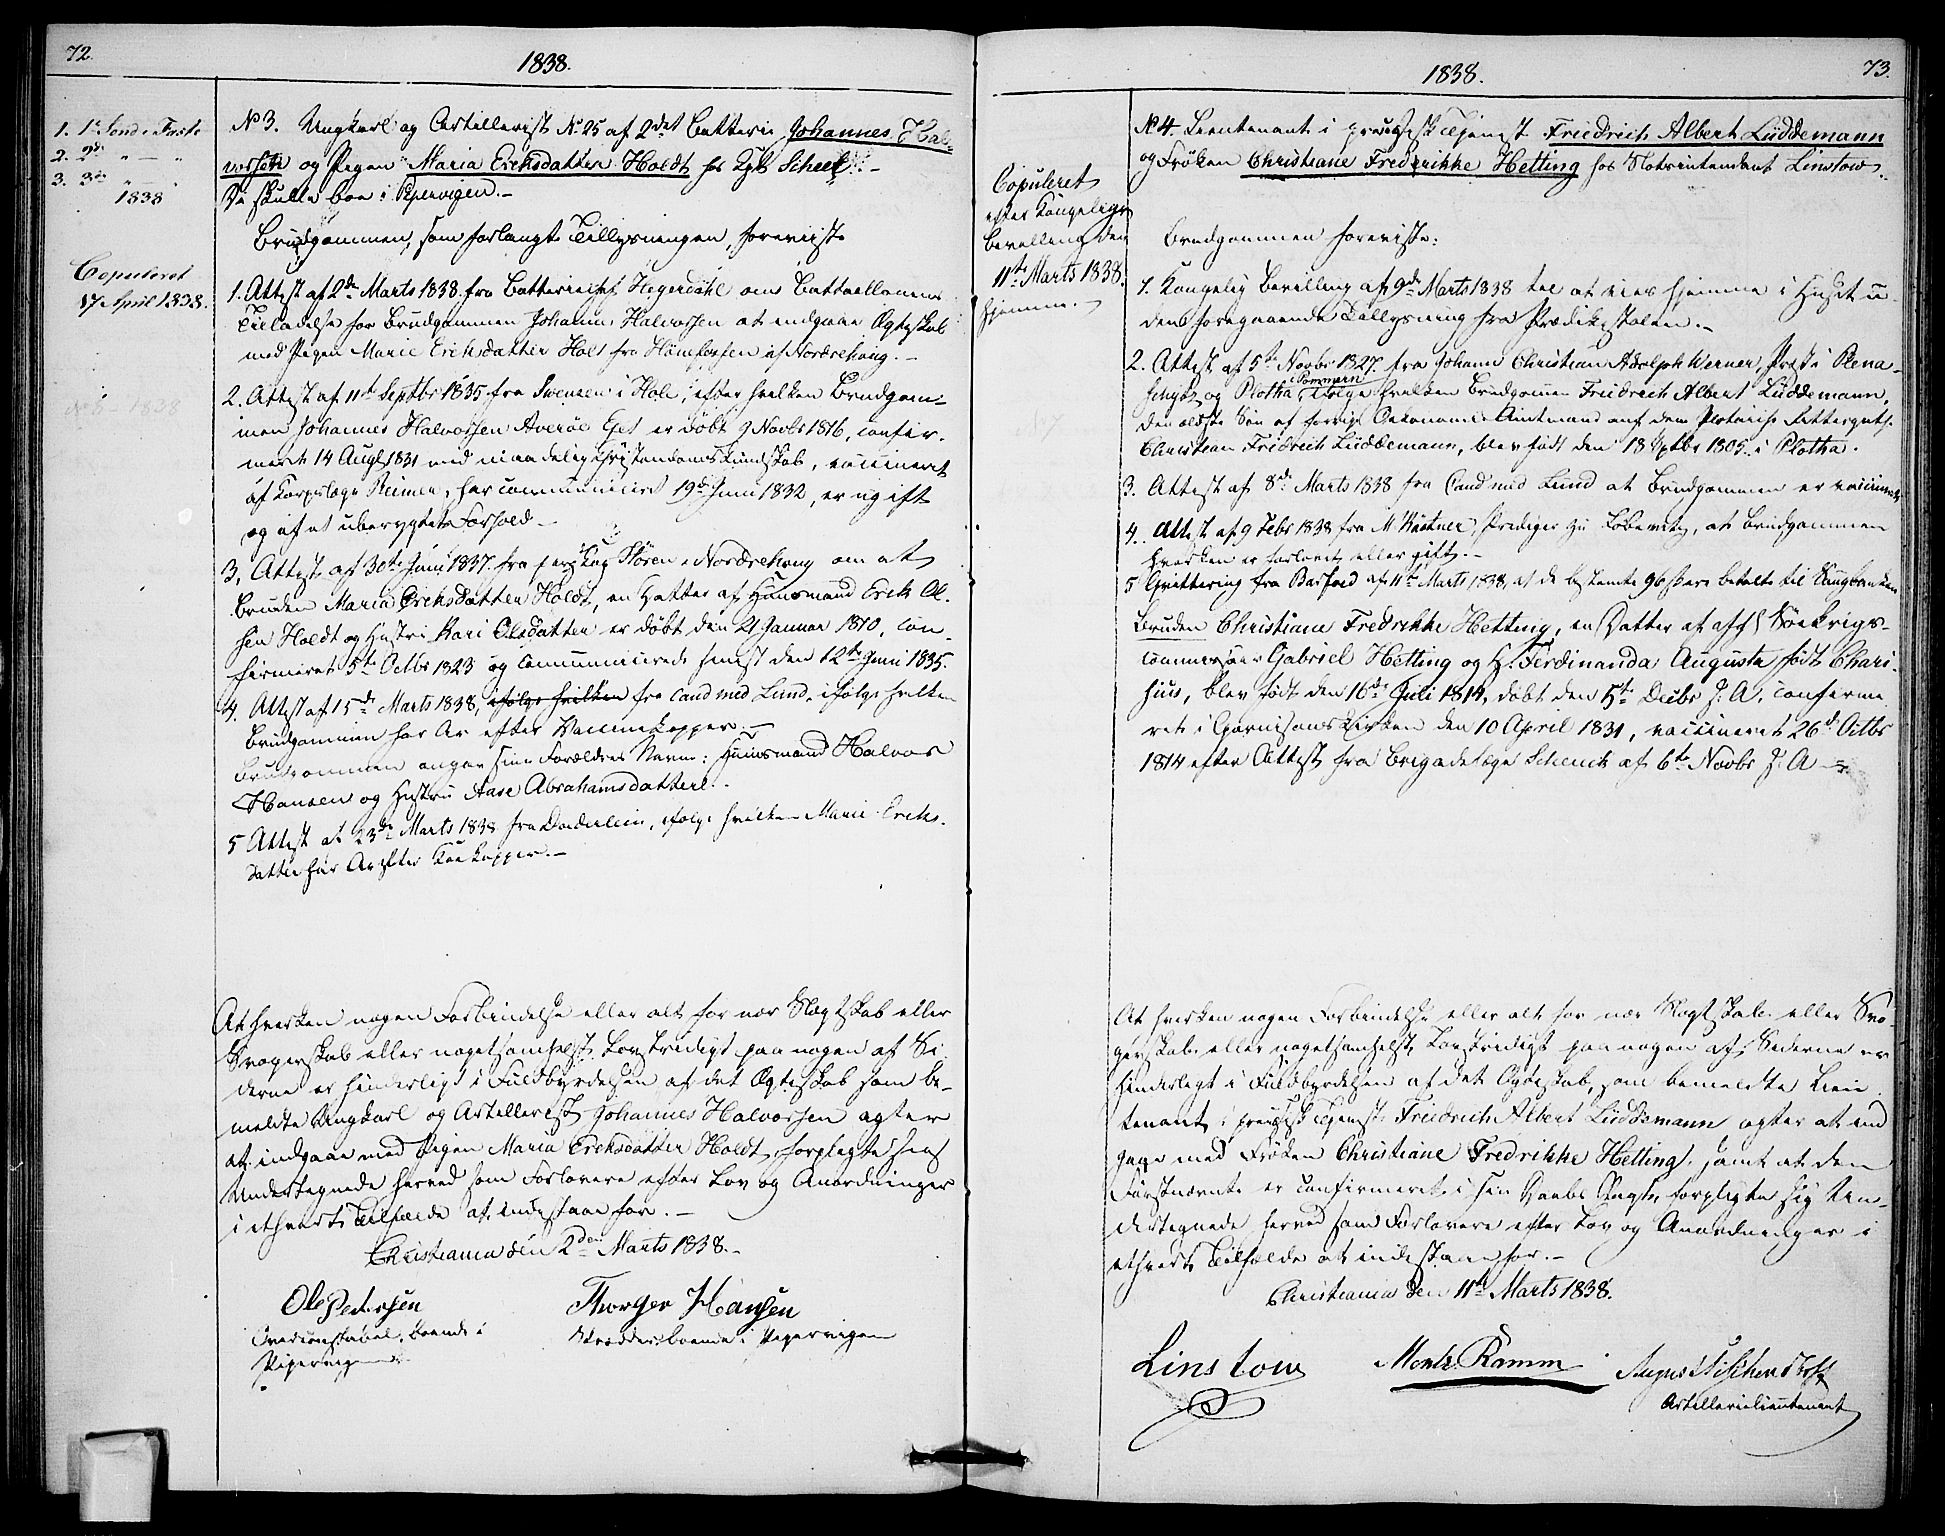 72.
1838.
1. 1ste Sond. i Faste
2. 2den " — "
3. 3die " — "
1838
Copuleret
17 April 1838.
No 3. Ungkarl og Artillerist No 25 af 2det Batterie Johannes Hal-
vorsen og Pigen Maria Ericksdatter Holdt hos Kgl. Scheel. —
De skulle boe i Pipervigen. —
Brudgommen, som forlangte Tillysningen, foreviiste
1. Attest af 2den Marts 1838 fra Batteriechef Hegerdahl om Battaillonens
Tilladelse for Brudgommen Johannes Halvorsen at indgaae Ægteskab
med Pigen Marie Ericksdatter Holt fra Hönefossen af Norderhoug. —
2. Attest af 11te Septbr 1835 fra Svensen i Hole, efter hvilken Brudgom-
men Johannes Halvorsen Averöe Eiet er döbt 9 Novbr 1816, confir-
meret 14 Aug 1831 med maadelig Christendoms Kundskab, vaccineret
af Korpslæge Reimer, har communiceret 19de Juni 1832, er ugift
og af et uberygtet Forhold —
3. Attest af 30te Juni 1837 fra pers. Kap. Stören i Norderhoug om at
Bruden Maria Ericksdatter Holdt, en Datter af Huusmand Erick Ol-
sen Holdt og Hustru Kari Olsdatter er döbt den 21 Januar 1810, con-
firmeret 5te Octbr 1823 og communicerede sidst den 12te Juni 1835.
4. Attest af 15de Marts 1838, ifölge hvilken fra Cand med Lund, ifölge hvilken
Brudgommen har Ar efter Vaccinekopper. —
Brudgommen angav sine Forældres Navne: Huusmand Halvor
Hansen og Hustru Aase Abrahamsdatter. —
5 Attest af 23de Marts 1838 fra Döderlein, ifölge hvilken Marie Ericks-
datter har Ar efter Koekopper. —
At hverken nogen Forbindelse eller alt for nær Slægtskab eller
Svogerskab eller nogetsomhelst Lovstridigt paa nogen af Si-
derne er hinderligt i Fuldbyrdelsen af det Ægteskab som be-
meldte Ungkarl og Artillerist Johannes Halvorsen agter
at indgaae med Pigen Maria Ericksdatter Holdt, forpligte sig
Undertegnede herved som Forlovere efter Lov og Anordninger
i ethvert Tilfælde at indestaae for. —
Christiania den 2den Marts 1838. —
Ole Pedersen
Overconstabel, boende i
Pipervigen
Thorger Hansen
Skrædder boende i Pipervigen
73.
1838.
Copuleret
efter Kongelig
Bevilling den
11te Marts 1838.
hjemme. —
No 4. Lieutenant i preusisk Tjeneste Friedrich Albert Lüddemann
og Fröken Christiane Fredrikke Hetting hos Slotsintendant Linstow.
Brudgommen foreviste:
1. Kongelig Bevilling af 9de Marts 1838 til at vies hjemme i Huset u-
den foregaaende Tillysning fra Prædikestolen. —
2. Attest af 5te Novbr 1827 fra Johann Christian Adolph Werner, Præst i
og Plotha i Pommern, ifölge hvilken Brudgommen Friedrich Albert Lüddemann,
den ældste Sön af forrige Oekonomie Amtmand auf dem
Christian Friedrich Lüddemann, blev födt den 18 Septbr 1805 i Plotha.
3. Attest af 8de Marts 1838 fra Cand med Lund at Brudgommen er vaccineret
4. Attest af 9 Febr 1838 fra M Kästner, Prediger zu at Brudgommen
hverken er forlovet eller gift. —
5 Qvittering fra Barfoed af 11te Marts 1838, at de bestemte 96 ere betalte til
Bruden Christiane Fredrikke Hetting, en Datter af afg. Söekrigs-
commissair Gabriel Hetting og H. Ferdinanda Augusta födt Chari-
sius, blev födt den 16de Juli 1814, döbt den 5te Decbr s. A. confirme-
ret i Garnisons Kirken den 10 April 1831, vaccineret 26de Octbr
1814 efter Attest fra Brigadelæge Schenck af 6te Novbr s. A —
At hverken nogen Forbindelse eller alt for nær Slægtskab eller Svo-
gerskab eller nogetsomhelst Lovstridigt paa nogen af Siderne er
hinderligt i Fuldbyrdelsen af det Ægteskab, som bemeldte Lieu-
tenant i preusisk Tjeneste Friedrich Albert Lüddemann agter at ind-
gaae med Fröken Christiane Fredrikke Hetting, samt at den
Förstnævnte er confirmeret i sin Daabs Pagt, forpligte sig Un-
dertegnede herved som Forlovere efter Lov og Anordninger i
ethvert Tilfælde at indestaae for. —
Christiania den 11te Marts 1838.
Linstow
Montz. Ramm
August Tischendorff
Artillerielieutenant